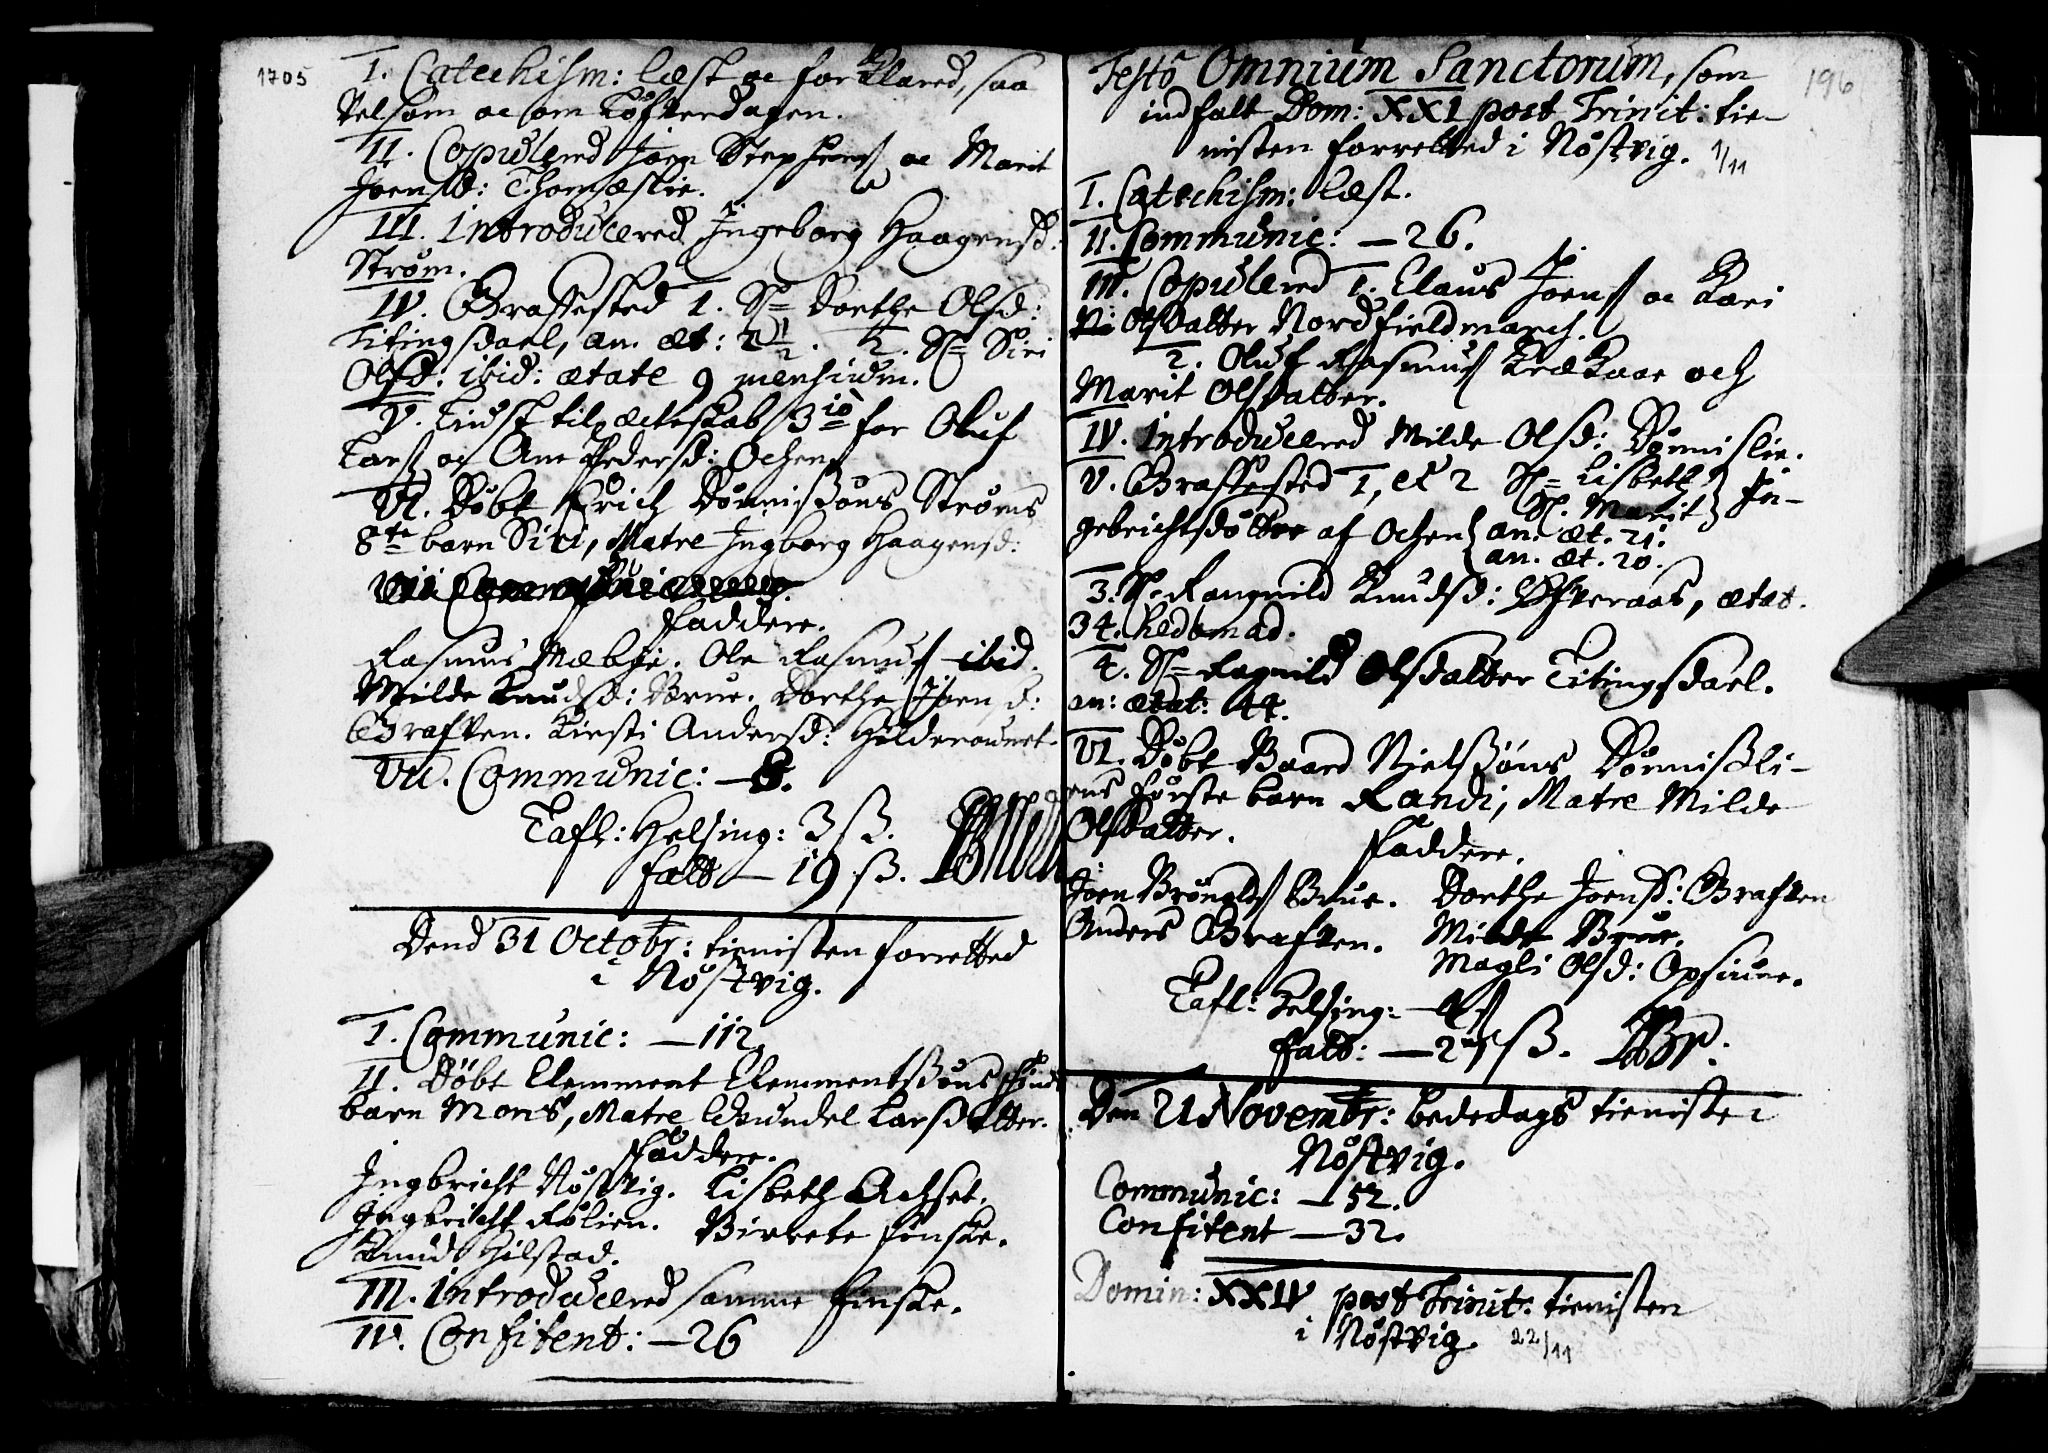 1705
I. Catechism: læst oc forklared, saa
velsom oc om Løfverdagen.
II. Copulered Joen Stephens oc Marit
Joensd: Thomæslie.
III. Introducered Ingeborg Haagensd:
Strøm.
IV. Graffested 1. Sl= Dorthe Olsd:
Titingsdael, an. æt: 2 1/2. 2. Sl= Siri
Olsd: ibid: ætate 9 mensium.
V. Liust til ecteskab 3io for Oluf
Lars oc Ane Pedersd: Ochen
VI. Døbt Erich Dønnissøns Strøms
8te barn Siri, Matre Ingborg Haagensd:
Faddere.
Rasmus Mæbøe. Ole Rasmus ibid.
Milde Knudsd: Brue. Dorthe Joensd:
Graften. Kirsti Andersd: Holderaunet.
VII. Communic: — 8.
Tafl: Helsing: 3 ß.
fatt — 19 ß.
Dend 31 Octobr: tienisten forretted
i Nøstvig.
I. Communic: — 112.
II. Døbt Clemment Clemmentssøns
barn Mons, Matre Larsdatter.
Faddere.
Ingbricht Nøstvig. Lisbeth Achset.
Ingbricht Rølien. Birrete Finske.
Knud Hilstad.
III. Introducered samme Finske.
IV. Confitent: — 26
196
Festo Omnium Sanctorum, som
indfalt Dom: XXI post Trinit: tie-
nisten forretted i Nøstvig. 1/11
I. Catechism: læst.
II. Communic: — 26.
III. Copulered 1. Claus Joens oc Kari
Olsdatter Nordfieldmarch.
2. Oluf Rasmus Krækaar och
Marit Olsdatter.
IV. Introducered Milde Olsd: Dønnislie.
V. Graffested 1, et 2 Sl= Lisbeth
Sl. Marit } In-
gebrichtsdøttre af Ochen { an. æt. 21.
an. æt. 20.
3. Sl. Rangnild Knudsd: Østeraas, ætat.
34. hedomad.
4. Sl= Ragnild Olsdatter Titingsdael.
an: ætat: 44.
VI. Døbt Baard Nielssøns Dønnissli-
ens første barn Randi, Matre Milde
Olsdatter.
Faddere.
Joen Brøngls Brue. Dorthe Joensd: Graften
Anders Graften. Milde Brue.
Magli Olsd: Opsiune.
Tafl: Helsing: — 4 ß
Fatt: — 2 ß.
Den 21 Novembr: bededags tieniste i
Nøstvig.
Communic: — 52.
Confitent — 32.
Domin: XXIV post Trinit: tienisten
i Nøstvig. 22/11